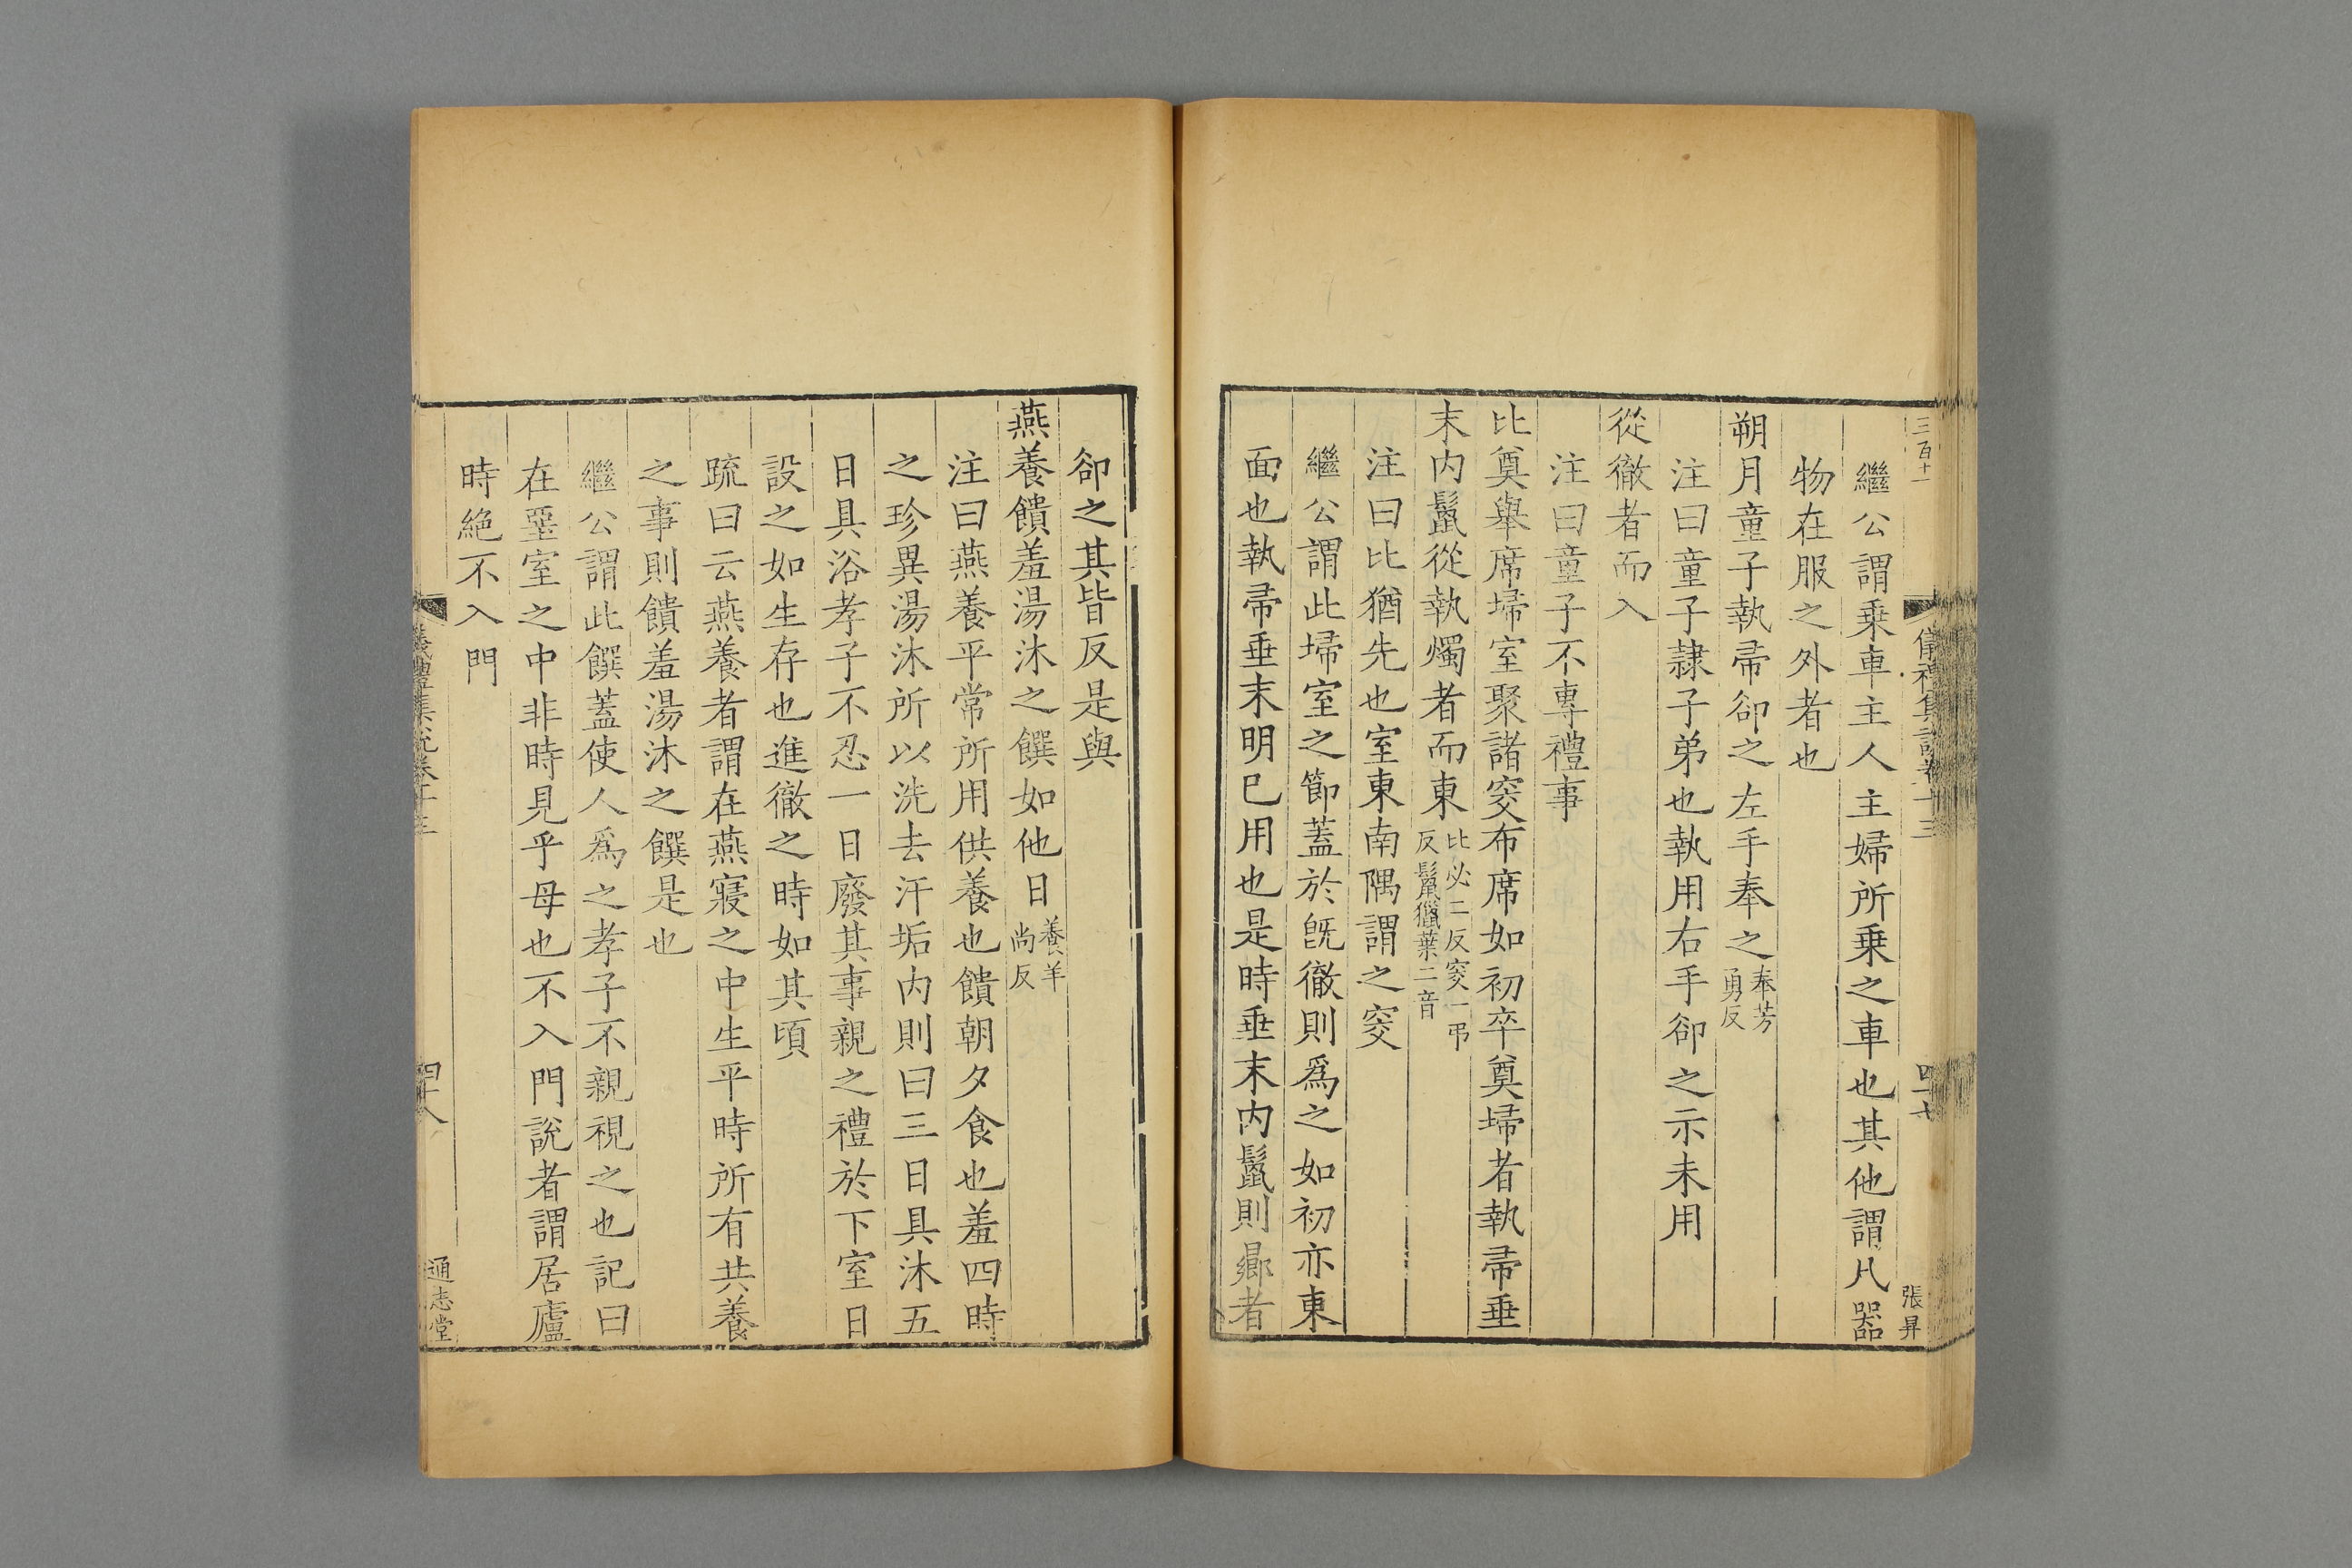 三百十一
儀禮集說卷十三
四十七
張昇
繼公謂乗車主人主婦所乗之車也其他謂凡器
物在服之外者也
朔月童子執帚卻之左手奉之奉芳勇反
注曰童子隷子弟也執用右手卻之示未用
從徹者而入
注曰童子不專禮事
比奠舉席埽室聚諸窔布席如初卒奠埽者執帚垂
末内鬛從執燭者而東比必二反窔一弔反鬛獵葉二音
注曰比猶先也室東南隅謂之窔
繼公謂此埽室之節蓋於旣徹則爲之如初亦東
面也執帚垂末明巳用也是時垂末内鬛則鄉者
卻之其皆反是與
燕養饋羞湯沐之饌如他日養羊尚反
注曰燕養平常所用供養也饋朝夕食也羞四時
之珍異湯沐所以洗去汗垢内則曰三日具沐五
日具浴孝子不忍一日廢其事親之禮於下室日
設之如生存也進徹之時如其頃
疏曰云燕養者謂在燕寢之中生平時所有共養
之事則饋羞湯沐之饌是也
繼公謂此饌蓋使人爲之孝子不親視之也記曰
在堊室之中非時見乎母也不入門説者謂居廬
時絶不入門
儀禮集說卷十三
四十八
通志堂